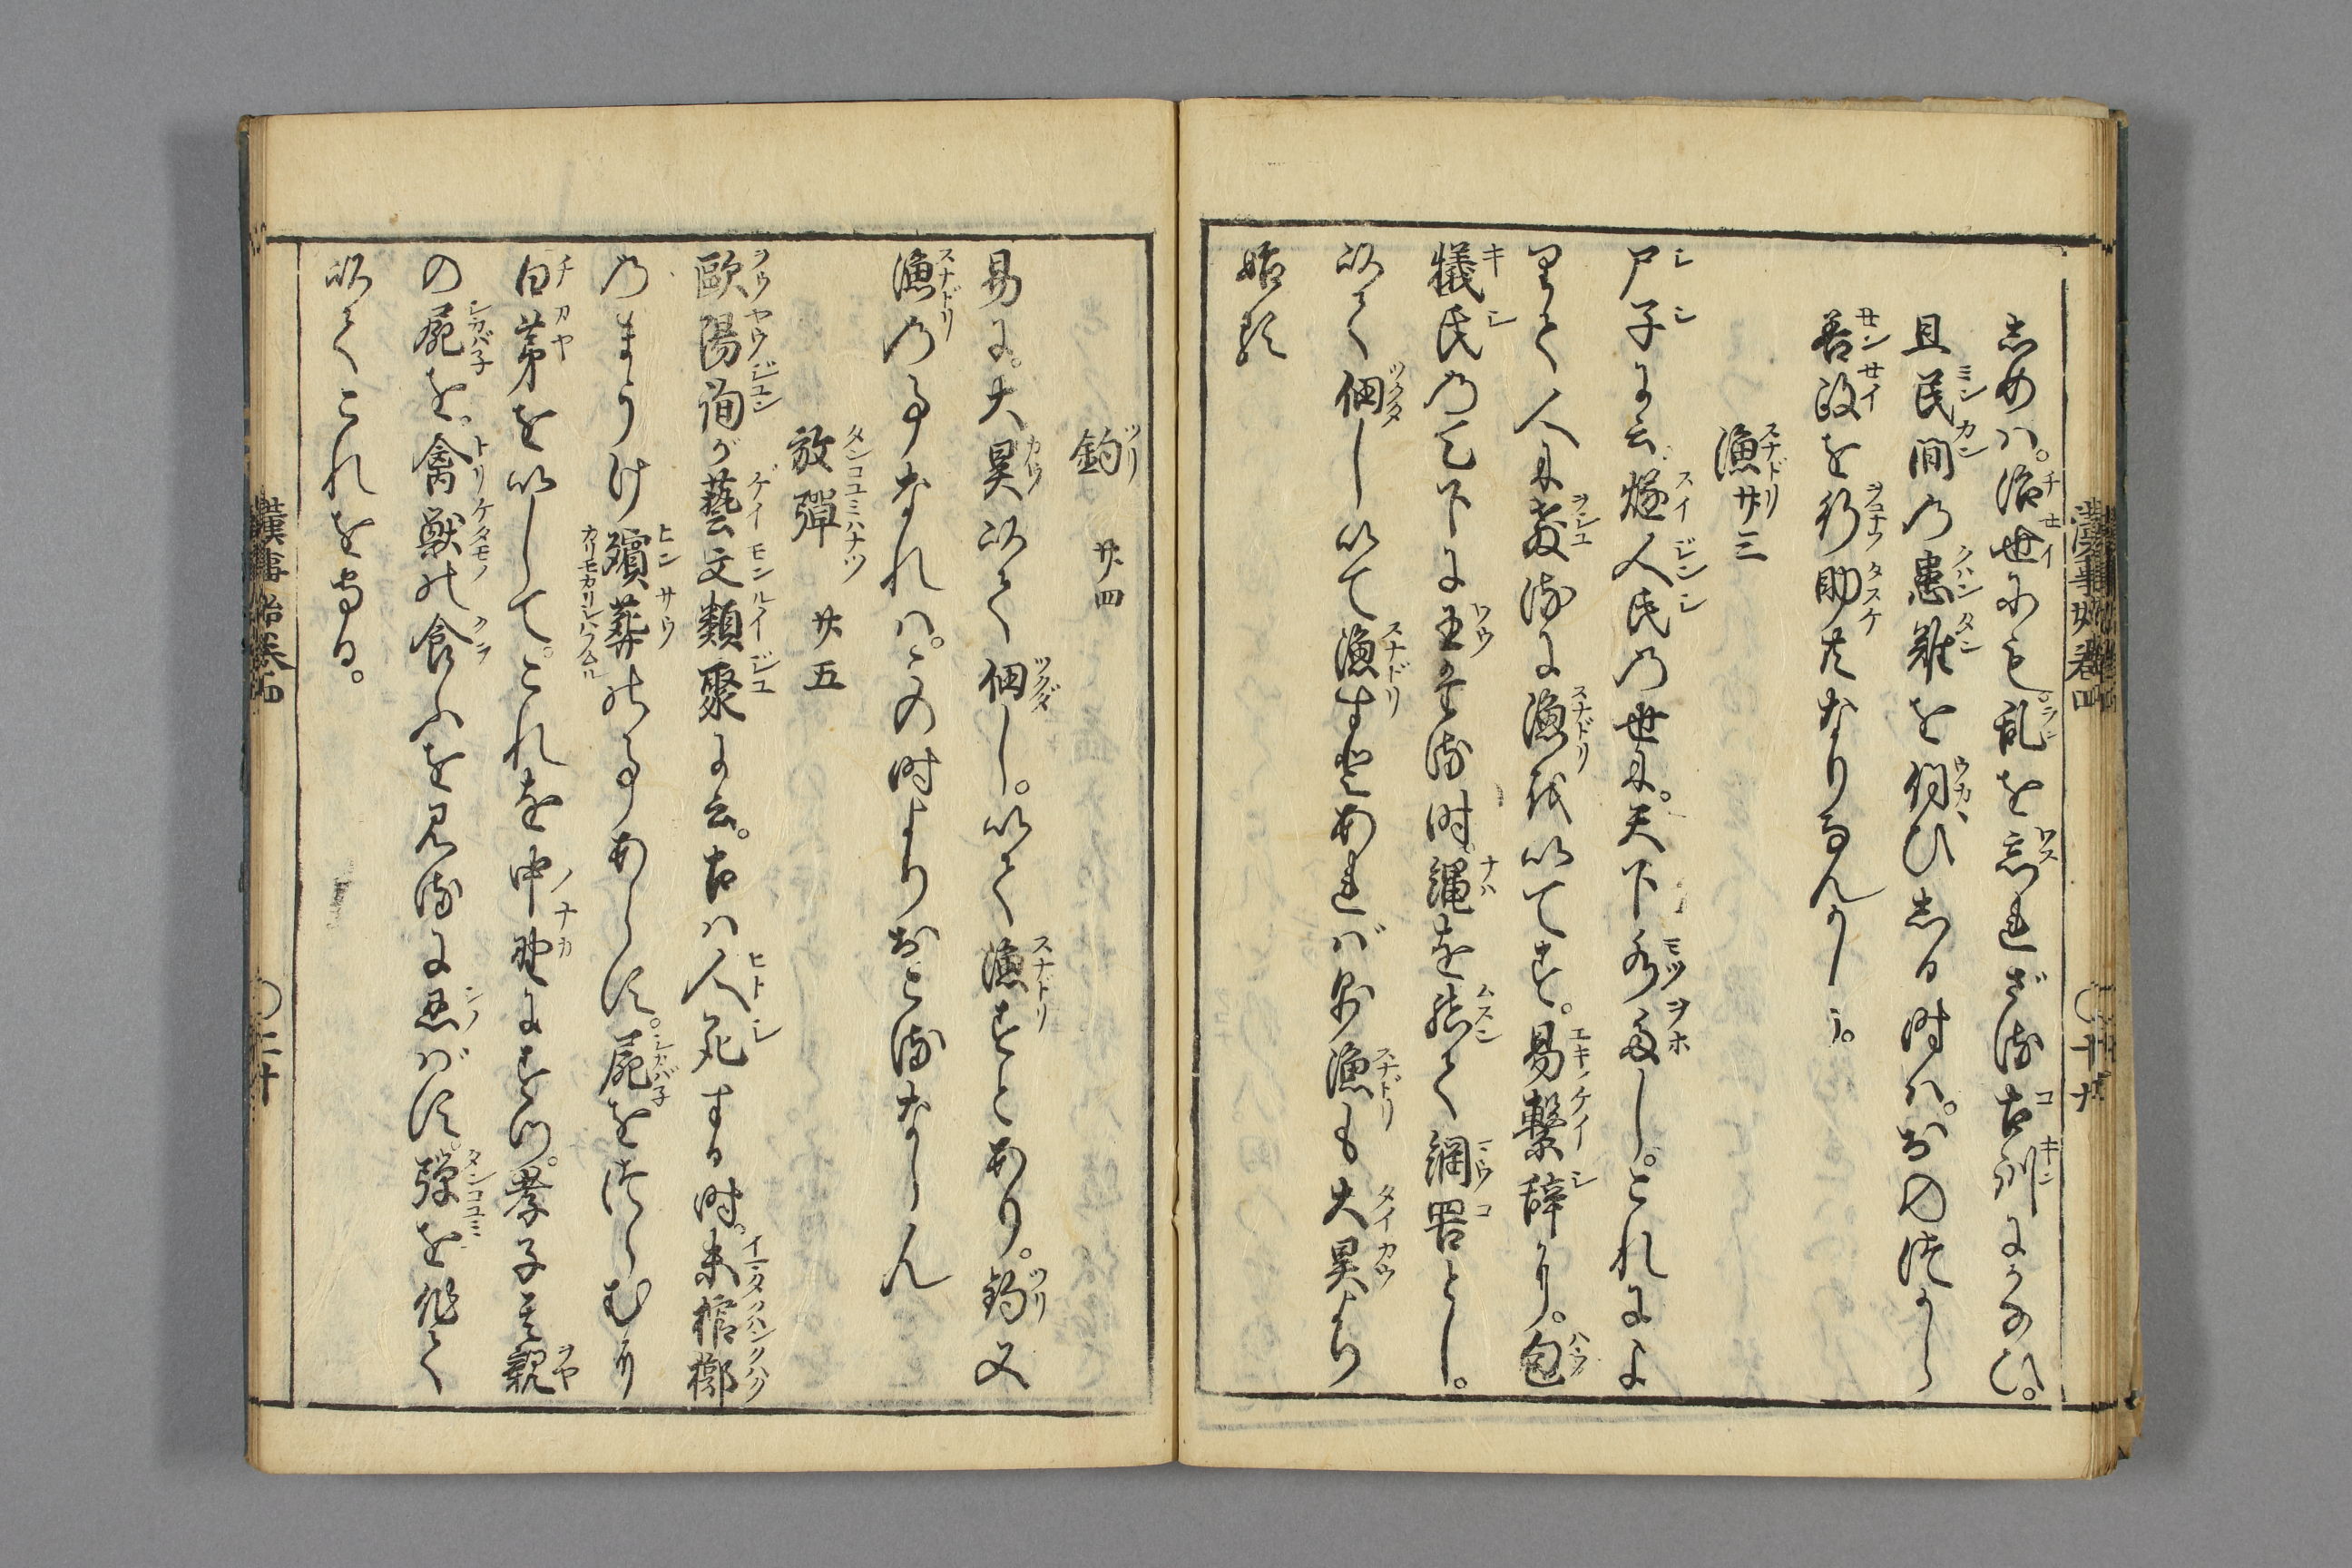 しめハ。治世にも。乱を忘れざる古訓にかなひ。
且民間の患難を伺ひしる時ハ。おのづから
善政を行助共なりなんかし。
漁 廿三
尸子に云。燧人氏の世に。天下水多し。これによ
りて人に教るに漁を以てす。易繋辞ニリ。包
犠氏の天下に王たる時縄を結て網罟とし。
以て佃し以て漁すとあれバ則漁も大昊より
始る
釣 廿四
易に。大昊以て佃し。以て漁すとあり。釣又
漁の事なれハ。この時よりおこるならん
放彈 廿五
歐陽詢が藝文類聚に云。古ハ人死する時。未棺槨
のまうけ殯葬の事あらず。屍をつゝむに
白茅を以して。これを中野にすつ。孝子其親
の屍を。禽獣の食ふを見るに忍バず。弾を作て
以てこれを守る。
漢事始巻四
二十